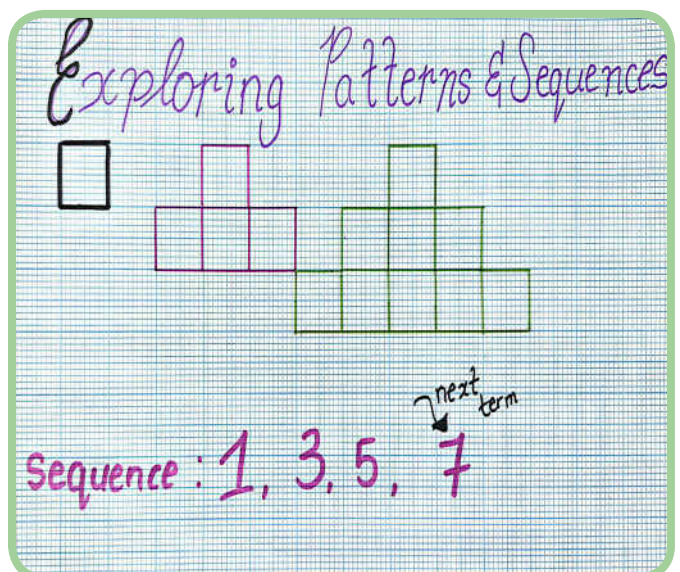 Exploring Patterns & Sequences
next
term
sequence : 1, 3, 5, 7